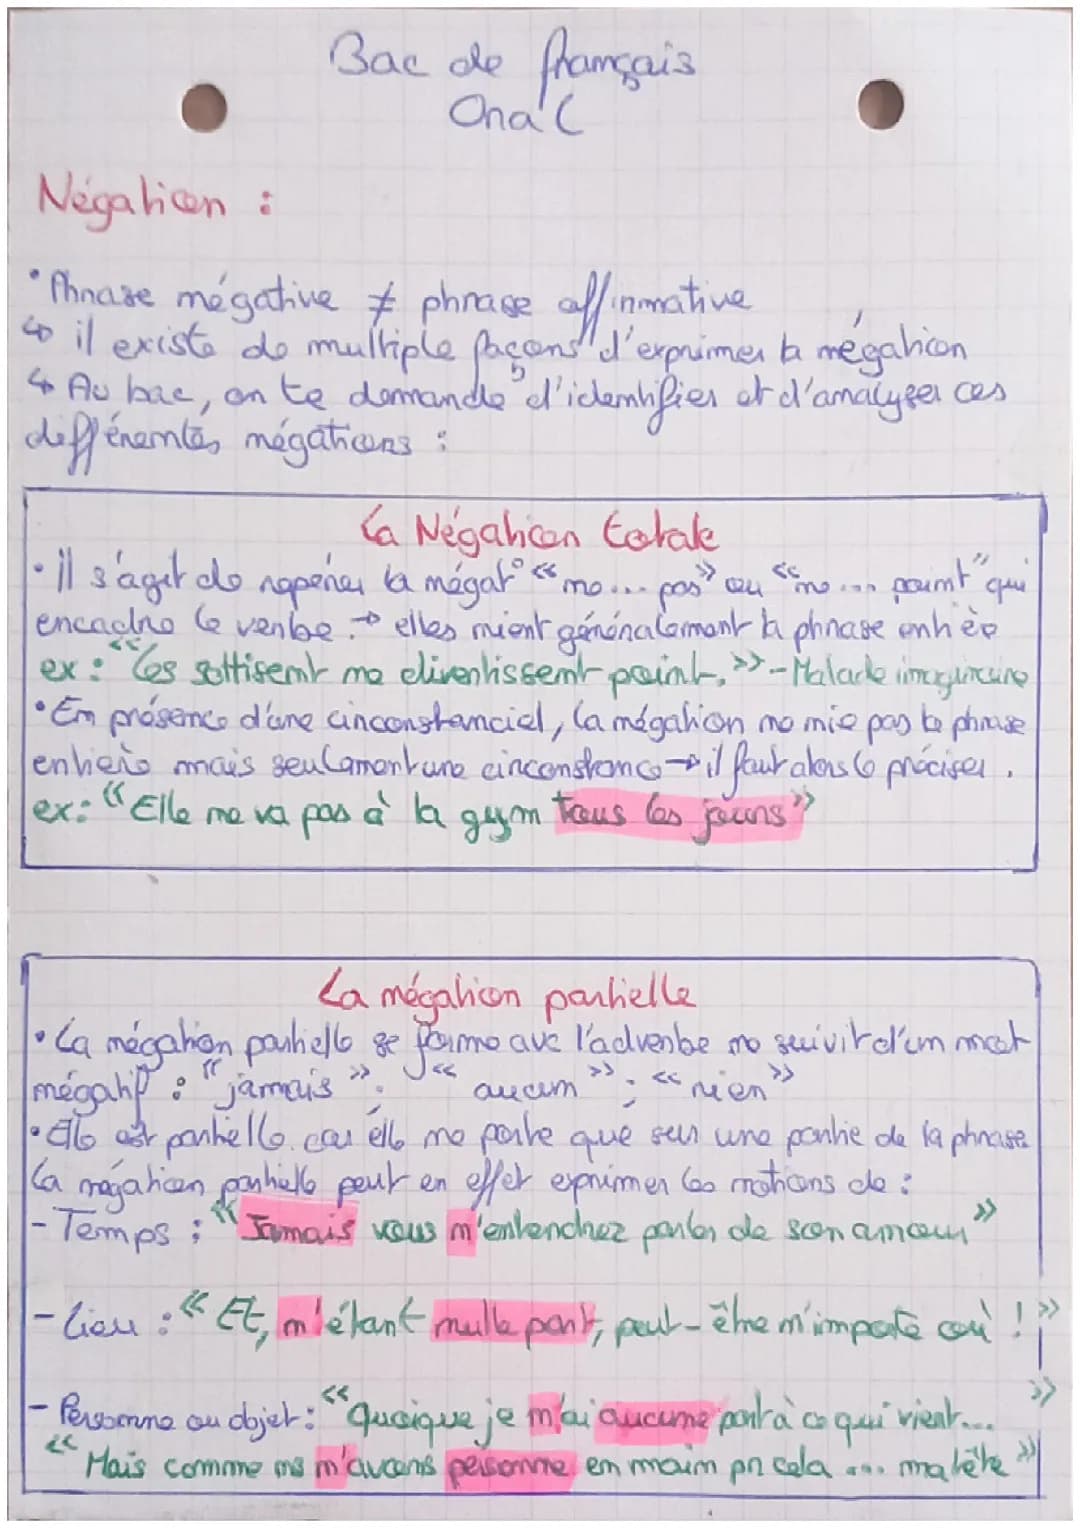 Bac de français
Oral
Négation :
• Phrase négative ≠ phrase affirmative
↳ il existe de multiple façons d'exprimer la négation
↳ Au bac, on te demande d'identifier et d'analyser ces
différentes négations :
La Négation totale
• Il s'agit de repérer la négat° « ne... pas » ou « ne ... point " qui
encadre le verbe. → elles nient généralement la phrase entière
ex : "Ces sottisent me divertissent point. » - Malade imaginaire
• En présence d'une circonstanciel, la négation ne nie pas la phrase
entière mais seulement une circonstance → il faut alors le préciser.
ex : " Elle ne va pas à la gym tous les jours »
La négation partielle
• La négation partielle se forme avc l'adverbe ne suivit d'un mot
négatif : " jamais » ; « aucun » ; « rien »
• Elle est partielle car elle ne porte que sur une partie de la phrase
La négation partielle peut en effet exprimer les notions de :
- Temps : " Jamais vous n'entendrez parler de son amour »
- Lieu : « Et, n'étant nulle part, peut-être n'importe où ! »
- Personne ou objet : « Quoique je n'ai aucune part à ce qui vient... »
« Mais comme ns n'avons personne en main pr cela ... ma tête »